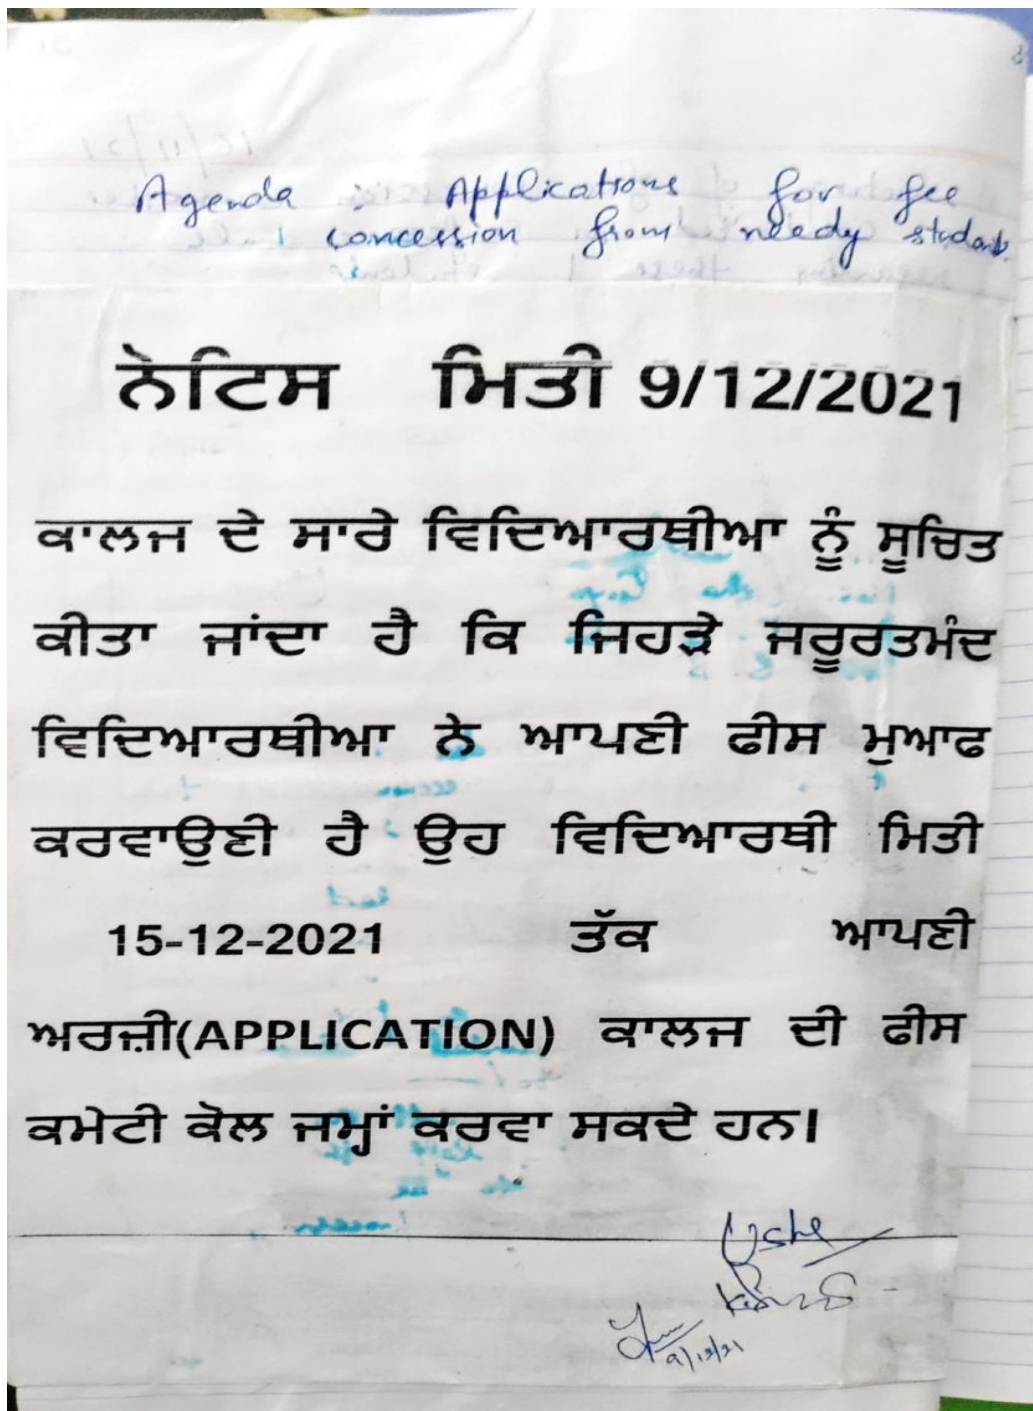 Agenda : Applications for fee
concession from needy students.
ਨੋਟਿਸ ਮਿਤੀ 9/12/2021
ਕਾਲਜ ਦੇ ਸਾਰੇ ਵਿਦਿਆਰਥੀਆ ਨੂੰ ਸੂਚਿਤ
ਕੀਤਾ ਜਾਂਦਾ ਹੈ ਕਿ ਜਿਹੜੇ ਜਰੂਰਤਮੰਦ
ਵਿਦਿਆਰਥੀਆ ਨੇ ਆਪਣੀ ਫੀਸ ਮੁਆਫ
ਕਰਵਾਉਣੀ ਹੈ ਉਹ ਵਿਦਿਆਰਥੀ ਮਿਤੀ
15-12-2021 ਤੱਕ ਆਪਣੀ
ਅਰਜ਼ੀ(APPLICATION) ਕਾਲਜ ਦੀ ਫੀਸ
ਕਮੇਟੀ ਕੋਲ ਜਮ੍ਹਾਂ ਕਰਵਾ ਸਕਦੇ ਹਨ।
9/12/21